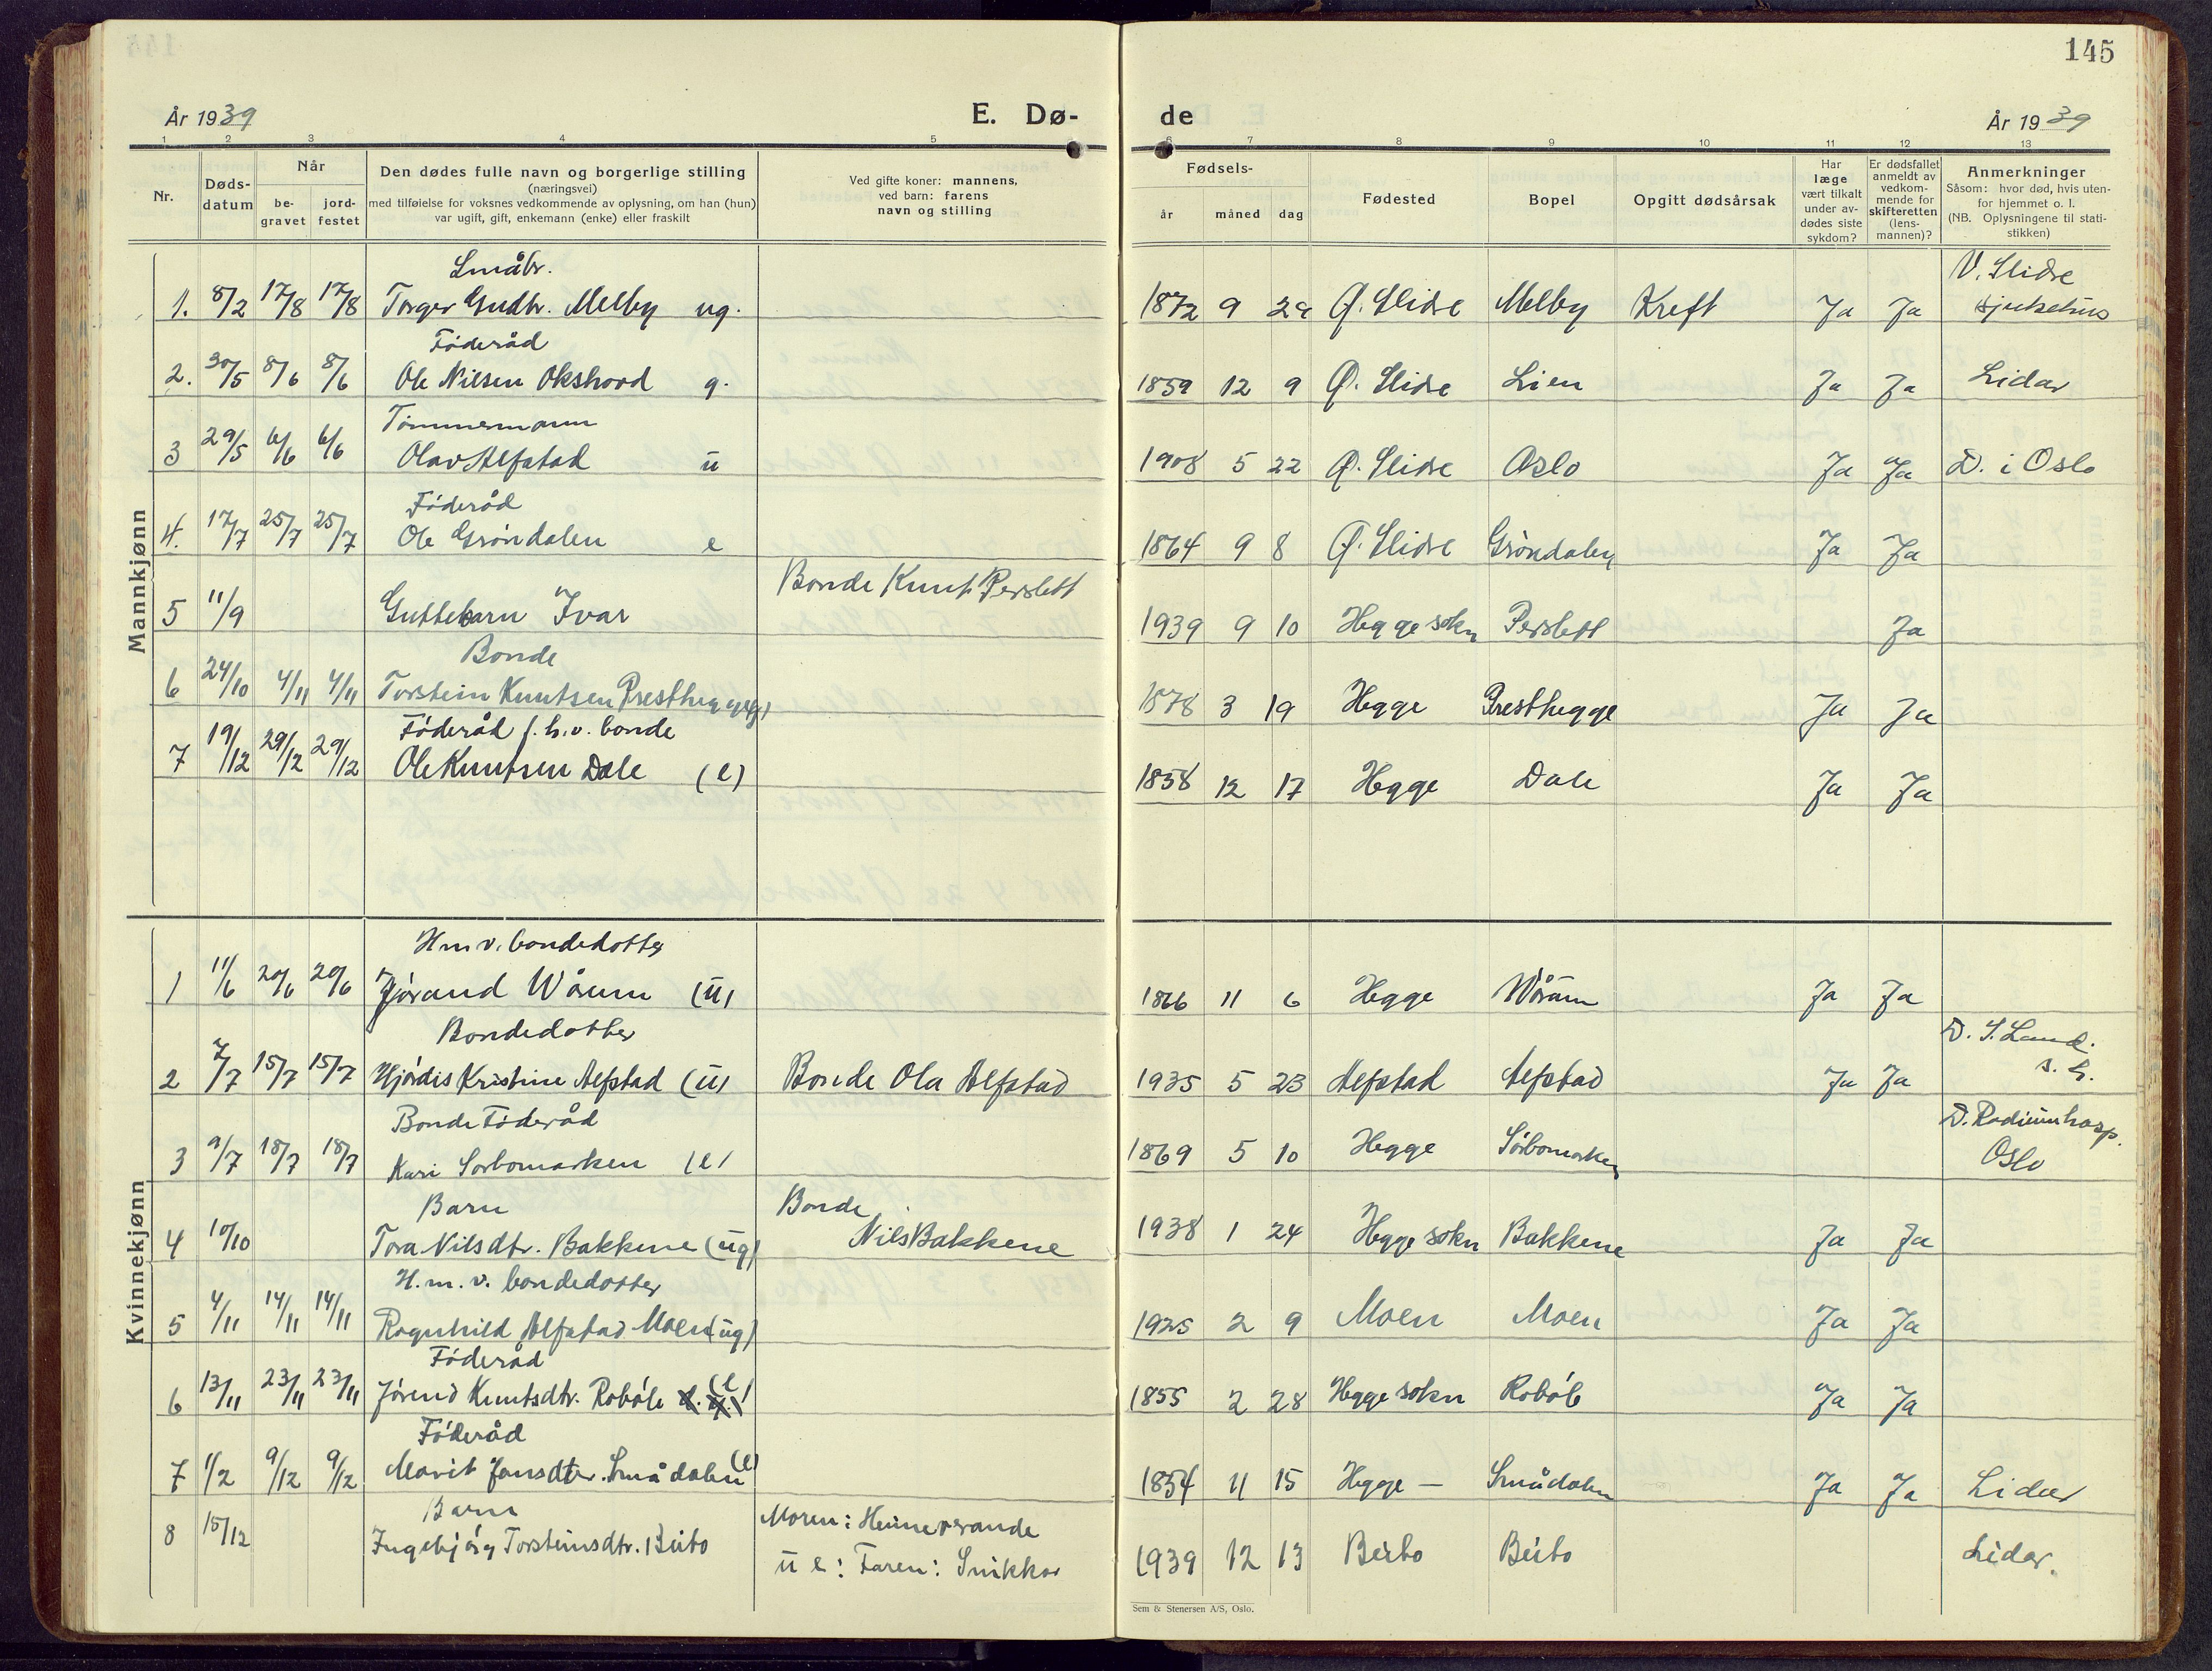 145
År 1939 E. Dø- de År 1939
1 2 3 4 5 6 7 8 9 10 11 12 13
Nr.
Døds-
datum
Når
be-
gravet
jord-
festet
Den dødes fulle navn og borgerlige stilling
(næringsvei)
med tilføielse for voksnes vedkommende av oplysning, om han (hun)
var ugift, gift, enkemann (enke) eller fraskilt
Ved gifte koner: mannens,
ved barn: farens
navn og stilling
Fødsels-
år måned dag
Fødested
Bopel
Opgitt dødsårsak
Har
læge
vært tilkalt
under av-
dødes siste
sykdom?
Er dødsfallet
anmeldt av
vedkom-
mende for
skifteretten
(lens-
mannen)?
Anmerkninger
Såsom: hvor død, hvis uten-
for hjemmet o. l.
(NB. Oplysningene til stati-
stikken)
Mannkjønn
Småbr. V. Slidre
1. 8/2 17/8 17/8 Torger Gudbr. Melby ug. 1872 9 29 Ø. Slidre Melby Kreft Ja Ja sjukehus
Föderåd
2. 30/5 8/6 8/6 Ole Nilsen Okshovd g. 1859 12 9 Ø. Slidre Lien Ja Ja Lidar
Tömmermann
3 29/5 6/6 6/6 Olav Alfstad u 1908 5 22 Ø. Slidre Oslo Ja Ja D. i Oslo
Föderåd
4. 17/7 25/7 25/7 Ole Gröndalen e 1864 9 8 Ø. Slidre Gröndalen Ja Ja
Bonde Knut Perslett
5 11/9 Guttebarn Ivar 1939 9 10 Hegge sokn Perslett Ja
Bonde
6 24/10 4/11 4/11 Torstein Knutsen Presthegge (g) 1878 3 19 Hegge Presthegge Ja Ja
Föderåd f.h.v. bonde
7 19/12 29/12 29/12 Ole Knutsen Dale (e) 1858 12 17 Hegge Dale Ja Ja
Kvinnekjønn
Hm v. bondedotter
1 11/6 20/6 20/6 Jörand Wåum (u) 1866 11 6 Hegge Wåum Ja Ja
Bondedotter D. S. Land.
2 7/7 15/7 15/7 Hjördis Kristine Alfstad (u) Bonde Ola Alfstad 1935 5 23 Alfstad Alfstad Ja Ja s. h.
Bonde Föderåd D. Radiumhosp.
3 9/7 18/7 18/7 Kari Sorbomarken (e) 1869 5 10 Hegge Sörbomarken Oslo
Barn Bonde
4 10/10 Tora Nilsdtr. Bakkene (ug) Nils Bakkene 1938 1 24 Hegge sokn Bakkene Ja Ja
H.m.v. bondedotter
5 4/11 14/11 14/11 Ragnhild Alfstad Moen (ug) 1925 2 9 Moen Moen Ja Ja
Föderåd
6 13/11 23/11 23/11 Jörend Knutsdtr. Roböle (e) 1855 2 28 Hegge sokn Roböle Ja Ja
Föderåd
7 1/2 9/12 9/12 Marit Jonsdtr. Smådalen (e) 1854 11 15 Hegge — Smådalen Ja Ja Lidar
Barn Moren: Heimeverande
8 15/12 Ingebjörg Torsteinsdtr. Beito u e: Faren: Snikkar 1939 12 13 Beito Beito Lidar.
Sem & Stenersen A/S, Oslo.